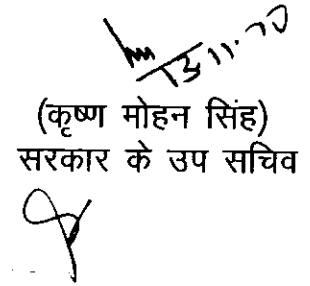 13.11.20
(कृष्ण मोहन सिंह)
सरकार के उप सचिव